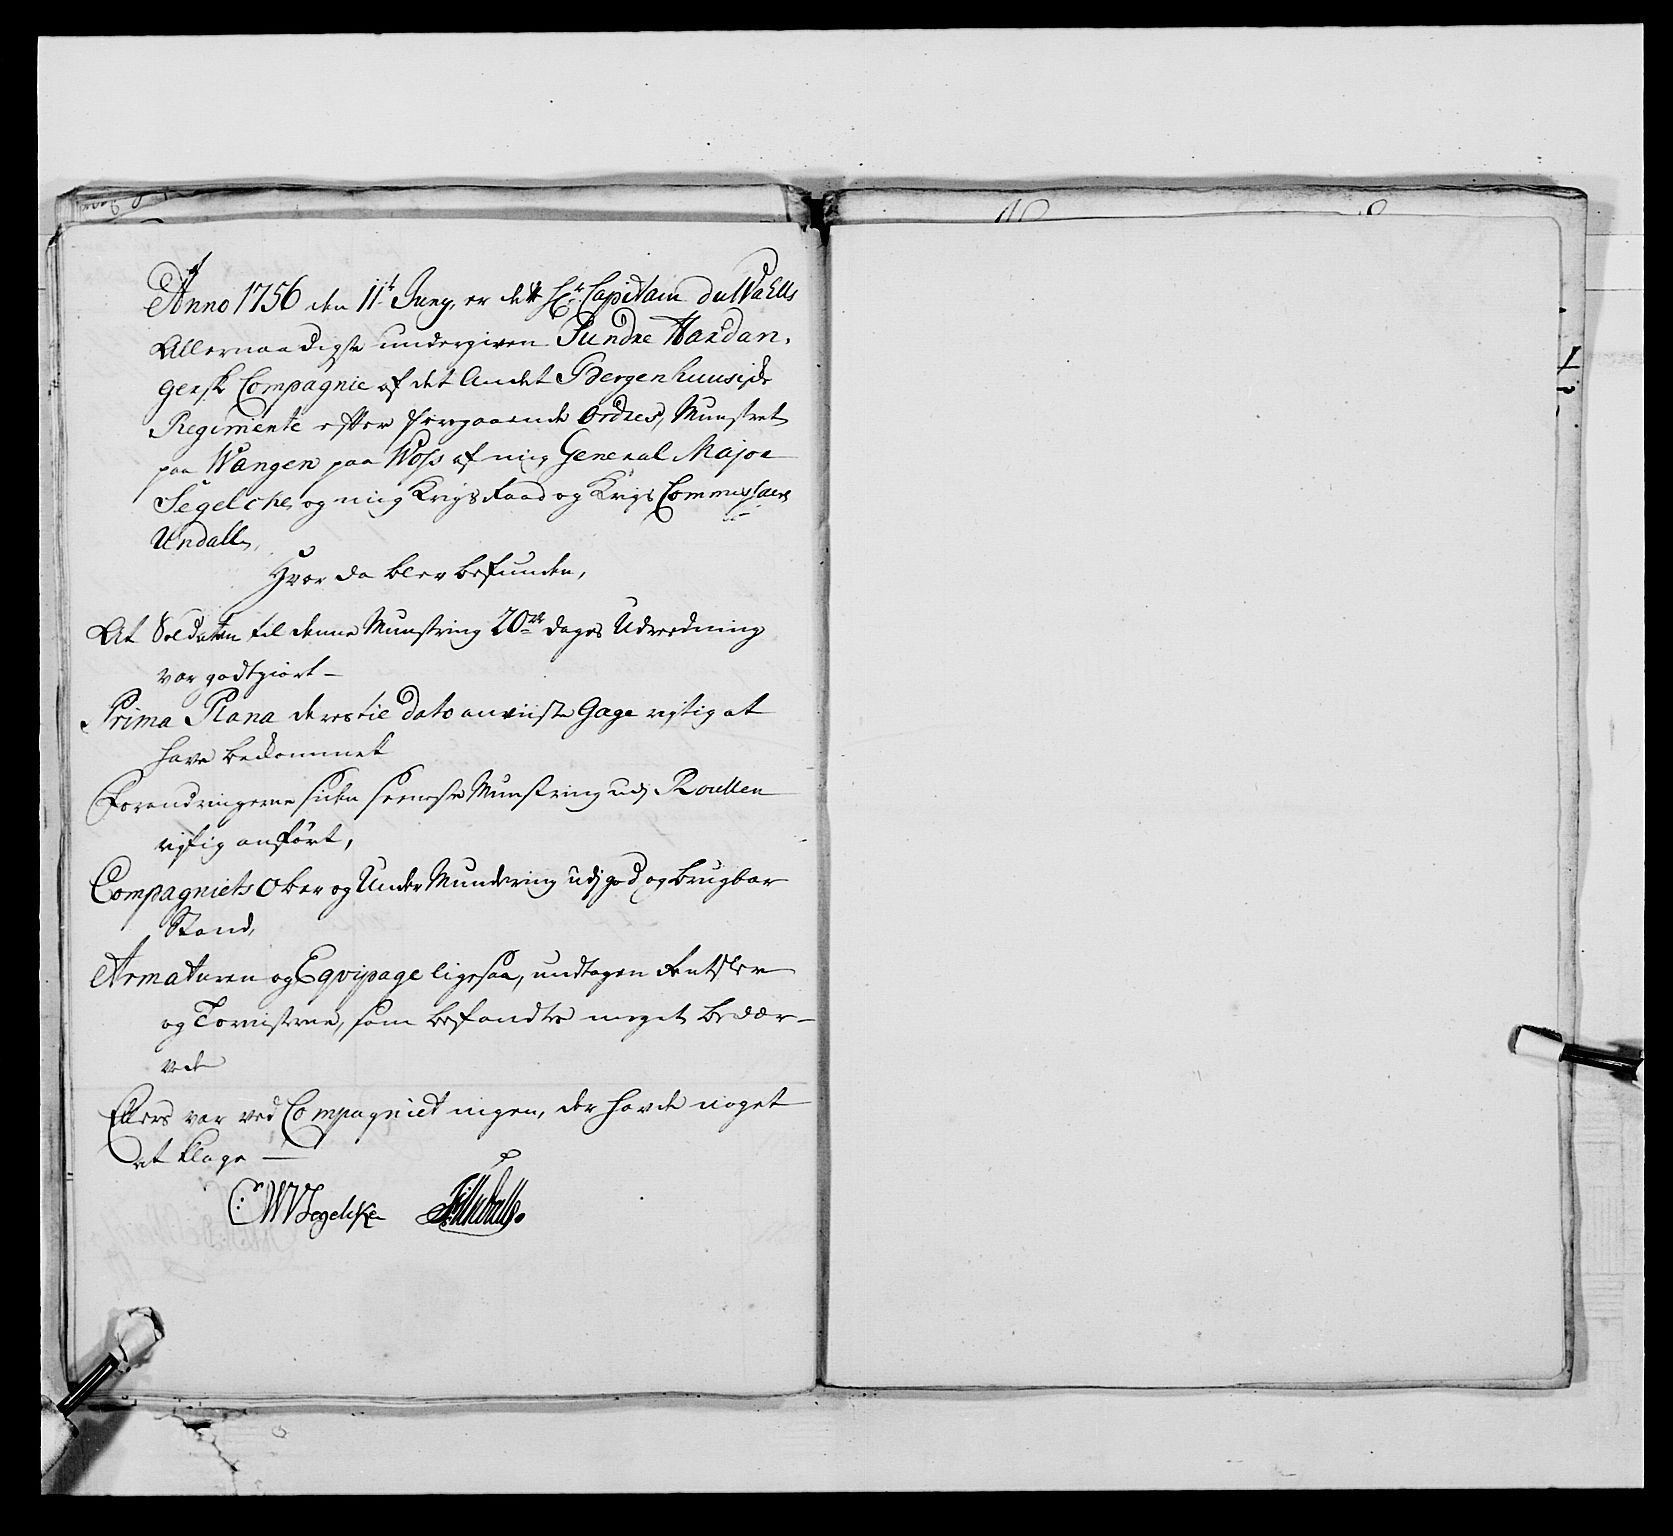 Anno 1756 den 11t Juny, er dett Hr Capitain du Wahlls
Allernaadigst undergivne Sundre Hardan,
gersk Compagnie af det Andet Bergenhuusiske
Regimente efter foregaaende Ordres, Munstret
paa Wangen paa Woss af mig General Major
Segelcke, og mig Krigs Raad og Krigs Commissaire
Undall,
Hvor da blev befunden,
At Soldaten til denne Munstring 20de dages Udredning
var godtgiort –
Prima Plana deres til Dato anviiste Gage rigtig at
have bekommet
Forandringerne siden seeneste Munstring udj Roullen
rigtig anført,
Compagniets Over og Under Mundering udj god og brugbar
Stand,
Armaturen og Eqvipage ligesaa, undtagen
og Tornisterne, som befandtes meget bedær–
vede
Ellers var ved Compagniet ingen, der havde noget
at klage —
C: W Segelcke